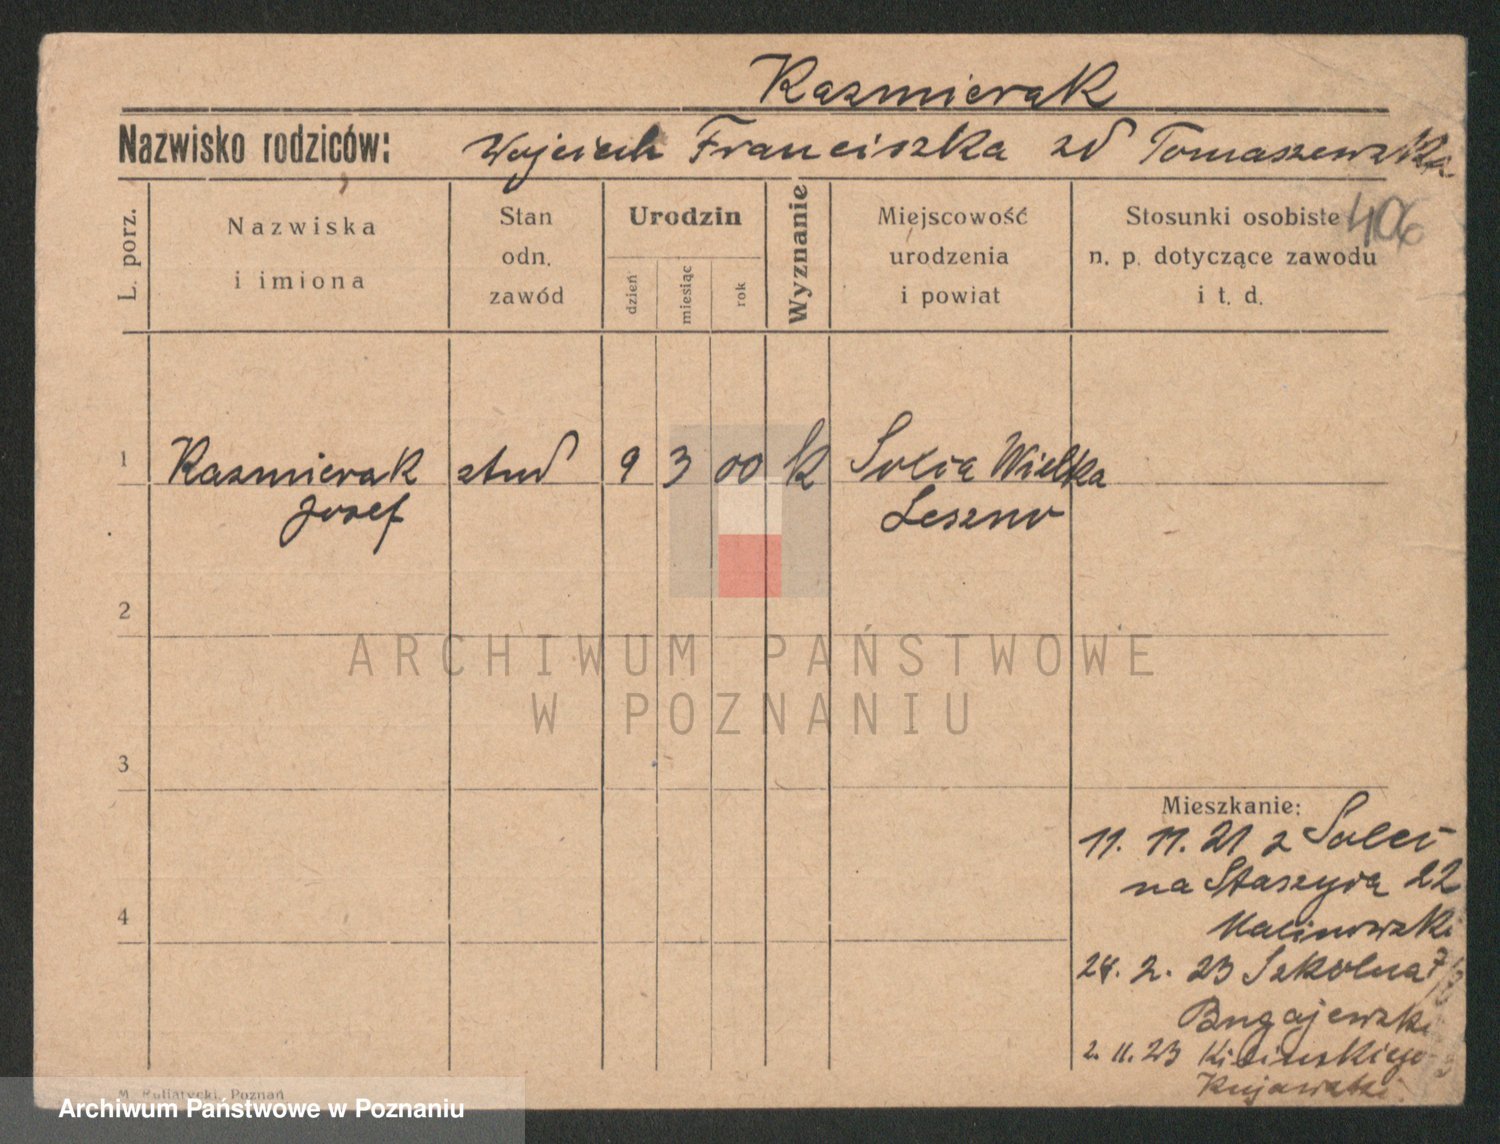 Kazmierak
Nazwisko rodziców: Wojciech Franciszka zd Tomaszewska
406
L. porz.
Nazwiska
i imiona
Stan
odn.
zawód
Urodzin
dzień
miesiąc
rok
Wyznanie
Miejscowość
urodzenia
i powiat
Stosunki osobiste
n. p. dotyczące zawodu
i t. d.
1 Kazmierak stud 9 3 00 k Solca Wielka
Josef Leszno
2
ARCHIWUM PAŃSTWOWE
W POZNANIU
3
Mieszkanie:
11. 11. 21 z Solci
na Staszyca 22
Malinowski
4
28. 2. 23 Szkolna 7
Bugajewski
2. 11. 23 Kilinskiego
Kujawski
M. Putiatycki, Poznań
Archiwum Państwowe w Poznaniu